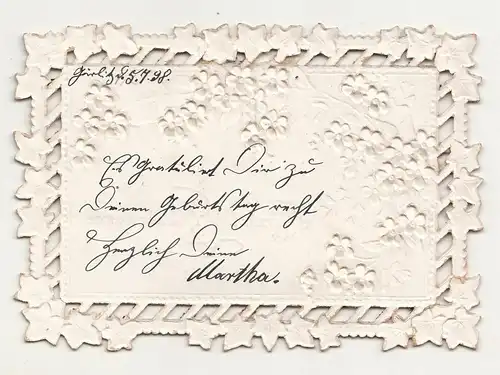 Görlitz d. 5.7.98.
Es gratuliert Dir zu
Deinem Geburtstag recht
herzlich Deine
Martha.